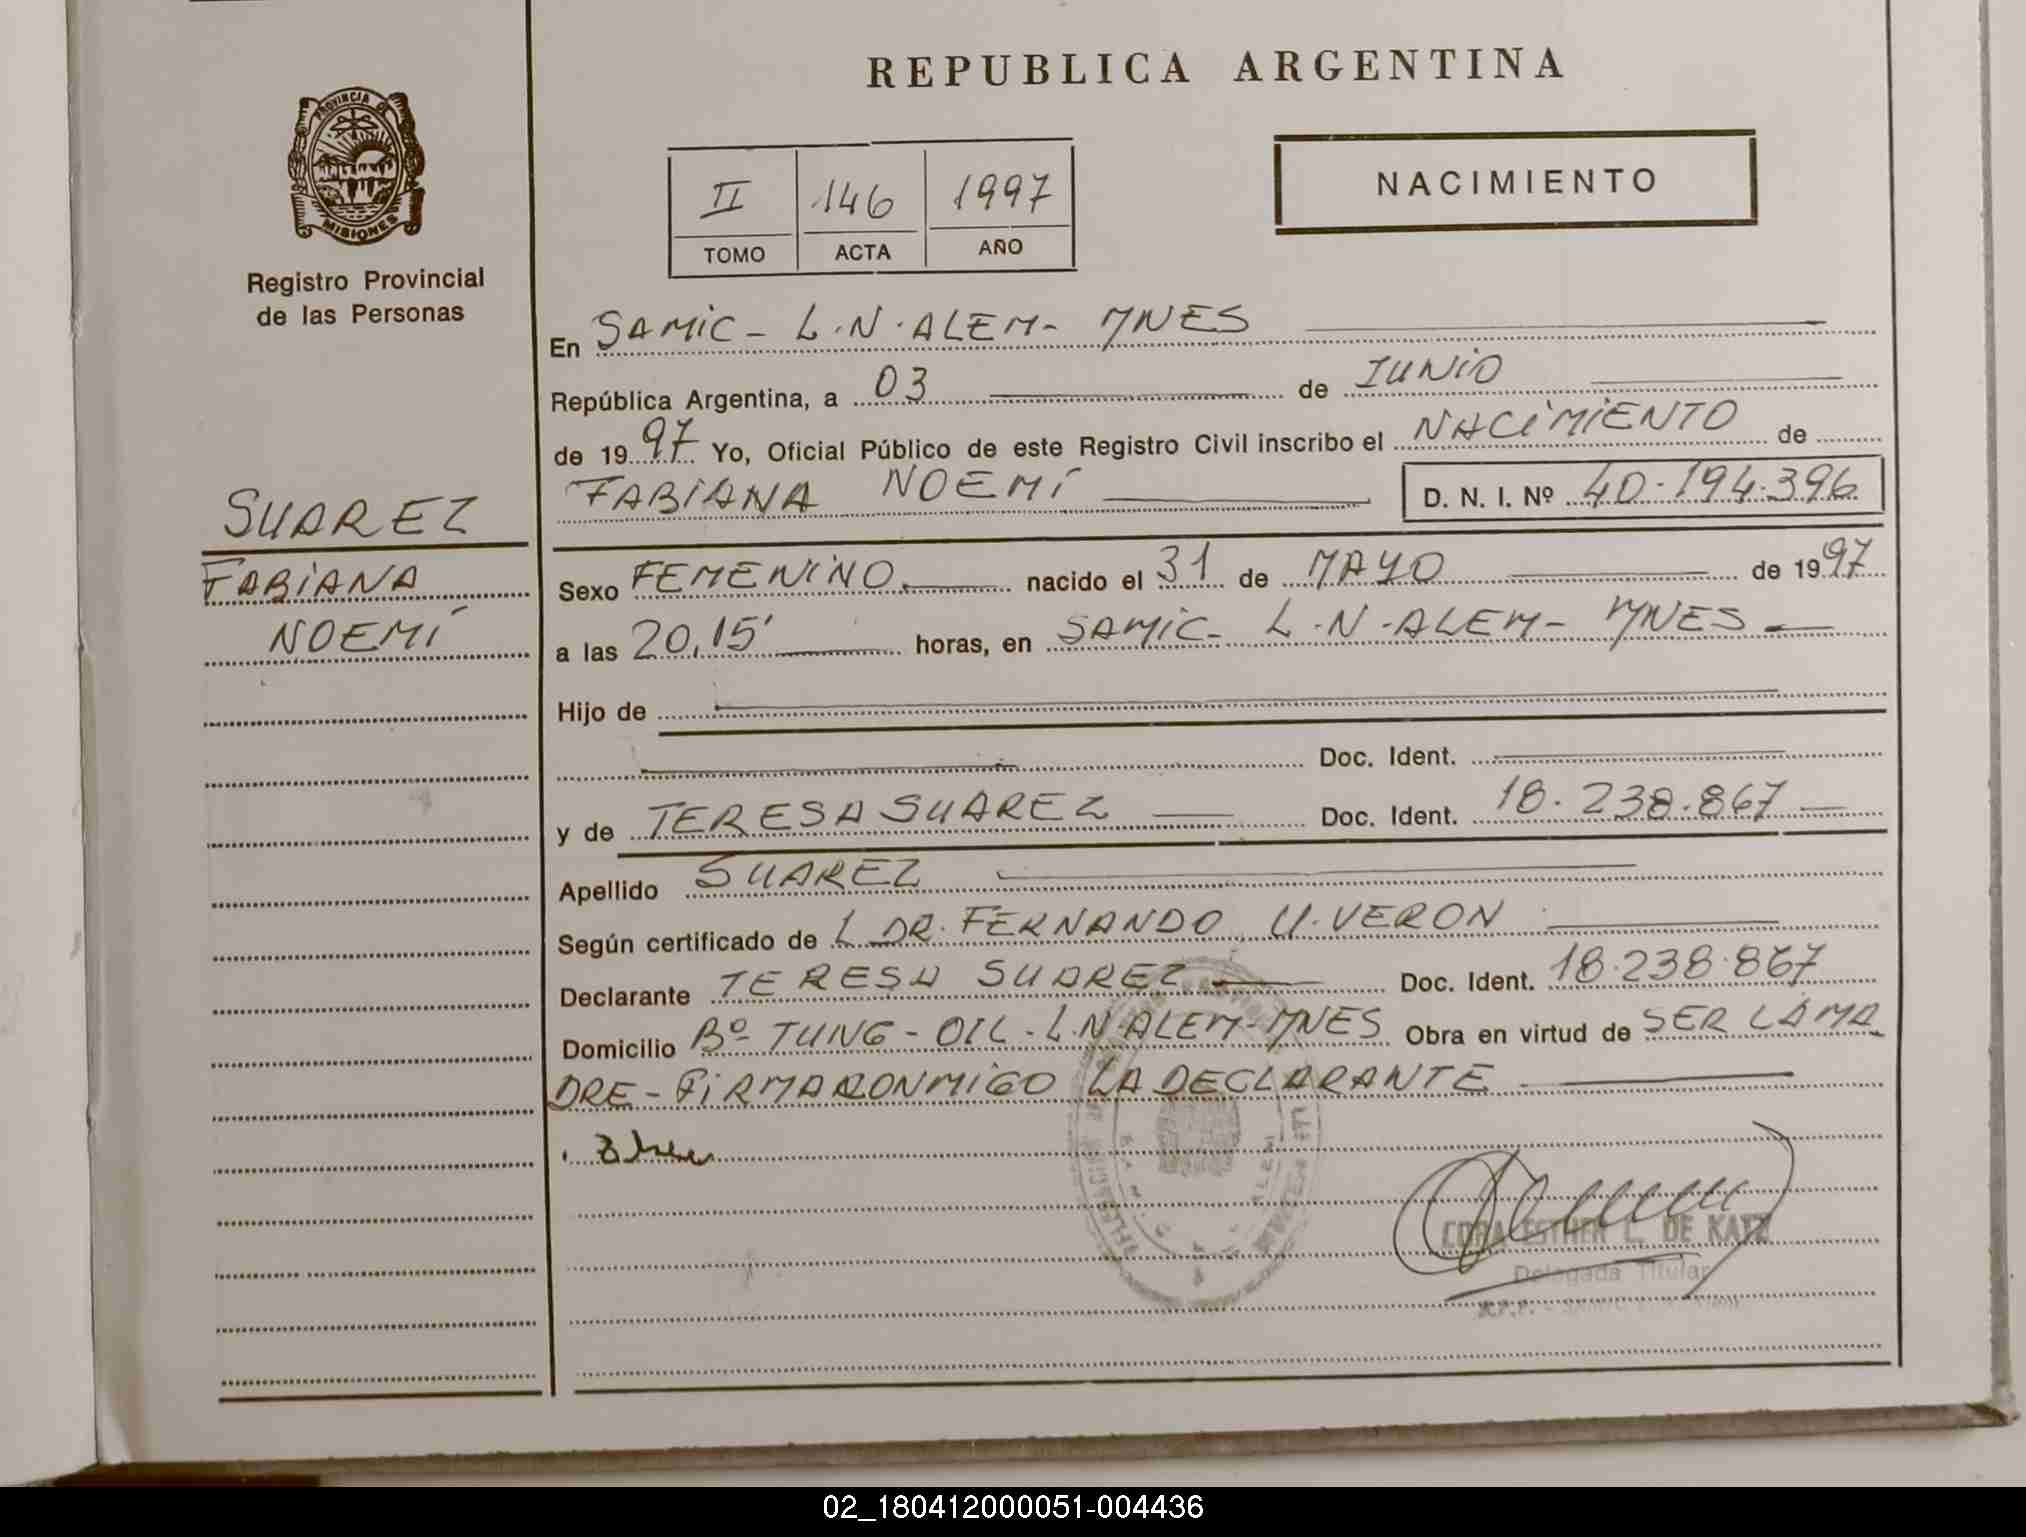 REPUBLICA ARGENTINA
PROVINCIA DE
MISIONES
Registro Provincial
de las Personas
II 146 1997
TOMO ACTA AÑO
NACIMIENTO
SUAREZ
FABIANA
NOEMÍ
En SAMIC - L.N.ALEM - MNES
República Argentina, a 03 de JUNIO
de 1997 Yo, Oficial Público de este Registro Civil inscribo el NACIMIENTO de
FABIANA NOEMÍ D. N. I. Nº 40.194.396
Sexo FEMENINO nacido el 31 de MAYO de 1997
a las 20,15' horas, en SAMIC - L.N.ALEM - MNES
Hijo de
Doc. Ident.
y de TERESA SUAREZ Doc. Ident. 18.238.867
Apellido SUAREZ
Según certificado de L DR. FERNANDO U. VERON
Declarante TERESA SUAREZ Doc. Ident. 18.238.867
Domicilio Bº TUNG-OIL - L.N.ALEM-MNES Obra en virtud de SER LA MA
DRE - FIRMA CONMIGO LA DECLARANTE
CORA ESTHER L. DE KATZ
Delegada Titular
02_180412000051-004436